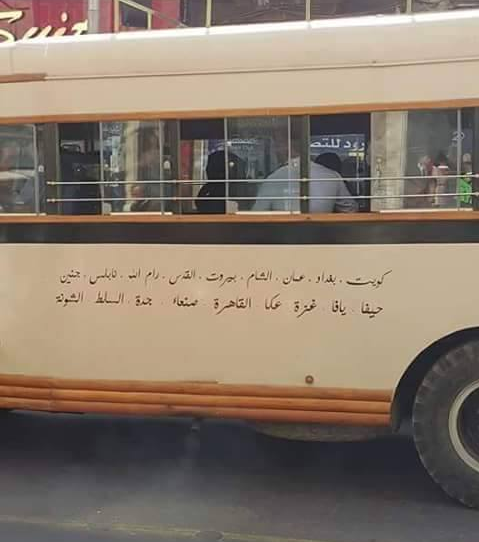 كويت . بغداد . عمان . الشام . بيروت . القدس . رام الله . نابلس . جنين
حيفا . يافا . غزة . عكا . القاهرة . صنعاء . جدة . السلط . الشونة